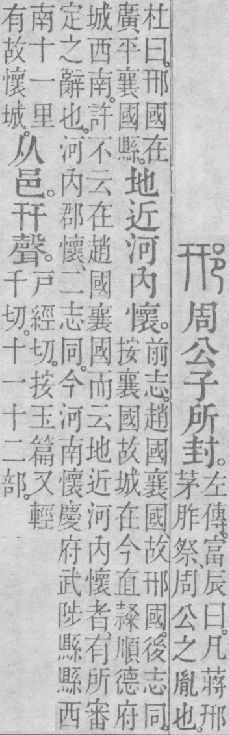 邢周公子所封。左傳。富辰曰。凡蔣邢
茅胙祭、周公之胤也。
杜曰。邢國在
廣平襄國縣。
地近河內懷。
前志。趙國襄國故邢國。後志同。
按襄國故城在今直隸順德府
城西南。許不云在趙國襄國而云地近河內懷者、有所審
定之辭也。河內郡懷、二志同。今河南懷慶府武陟縣縣西
南十一里
有故懷城。
从邑。幵聲。
戸經切。按玉篇又輕
千切。十一十二部。